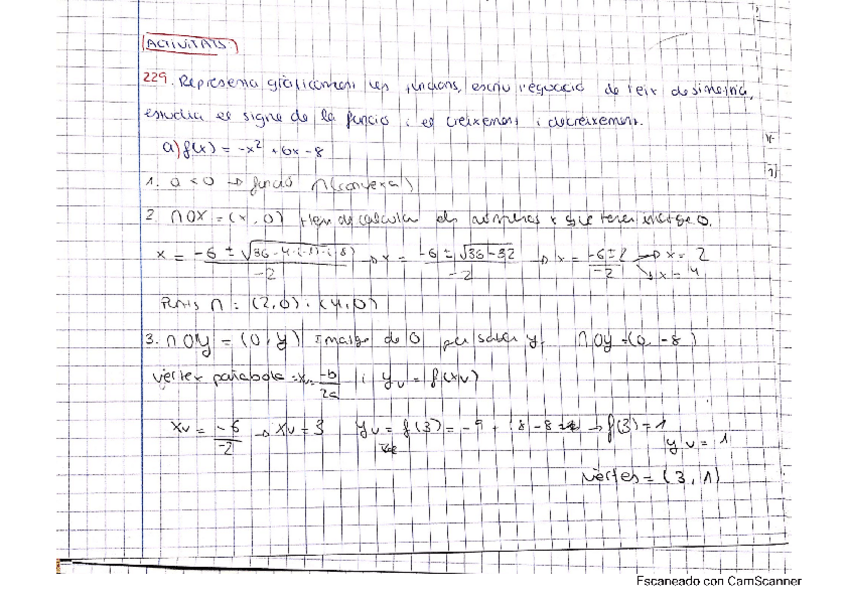 ACTIVITATS
229. Representa gràficament les funcions, escriu l'equació de l'eix de simetria,
estudia el signe de la funció i el creixement i decreixement.
a) f(x) = -x² + 6x - 8
1. a < 0 → funció ∩ (convexa)
2. ∩ OX = (x, 0) Hem de calcular els nombres x que tenen imatge 0.
x = -6 ± √36 - 4·(-1)·(-8) / -2 → x = -6 ± √36 - 32 / -2 → x = -6 ± 2 / -2 → x = 2
→ x = 4
Punts ∩ = (2,0) · (4,0)
3. ∩ OY = (0, y) Imatge de 0 per saber y. ∩ OY = (0, -8)
Vèrtex paràbola = xv = -b / 2a i yv = f(xv)
xv = -6 / -2 → xv = 3 yv = f(3) = -9 + 18 - 8 = → f(3) = 1
yv = 1
vèrtex = (3, 1)
Escaneado con CamScanner